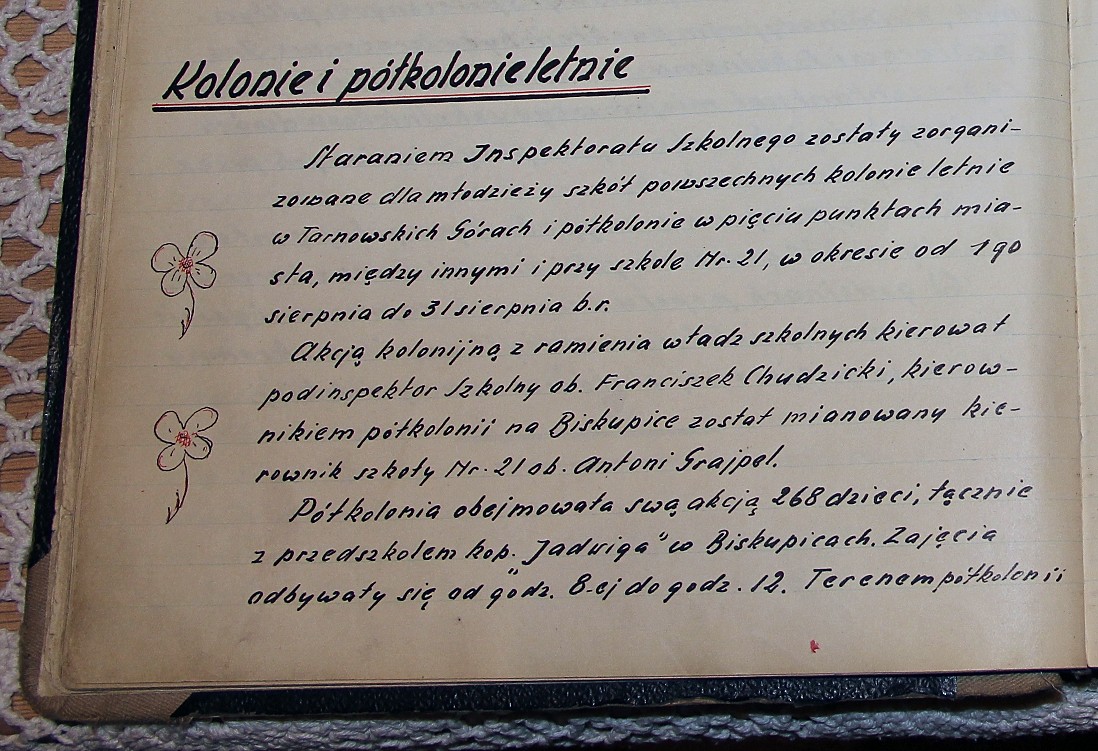 Kolonie i półkolonie letnie
Staraniem Inspektoratu Szkolnego zostały zorgani-
zowane dla młodzieży szkół powszechnych kolonie letnie
w Tarnowskich Górach i półkolonie w pięciu punktach mia-
sta, między innymi i przy szkole Nr. 21, w okresie od 1go
sierpnia do 31 sierpnia b.r.
Akcją kolonijną z ramienia władz szkolnych kierował
podinspektor Szkolny ob. Franciszek Chudzicki, kierow-
nikiem półkolonii na Biskupice został mianowany kie-
rownik szkoły Nr. 21 ob. Antoni Grajpel.
Półkolonia obejmowała swą akcją 268 dzieci, łącznie
z przedszkolem kop. „Jadwiga" w Biskupicach. Zajęcia
odbywały się od godz. 8-ej do godz. 12. Terenem półkolonii